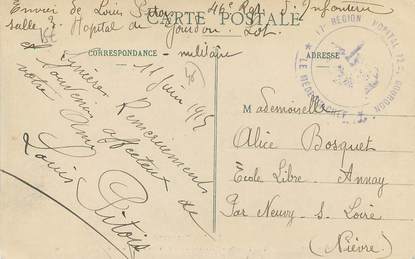 Envoi de Louis Pitois 46e Regt d'Infanterie
CARTE POSTALE
Salle 3. Hopital de Gourdon. Lot.
CORRESPONDANCE
militaire
ADRESSE
11 Juin 1915
Remerciements
Souvenirs affectueux de
votre Ami
Louis Pitois
17e REGION HOPITAL
* LE MEDECIN CHEF * GOURDON
Mademoiselle
Alice Bosquet
Ecole Libre Annay
Par Neuvy-s-Loire
(Nièvre)